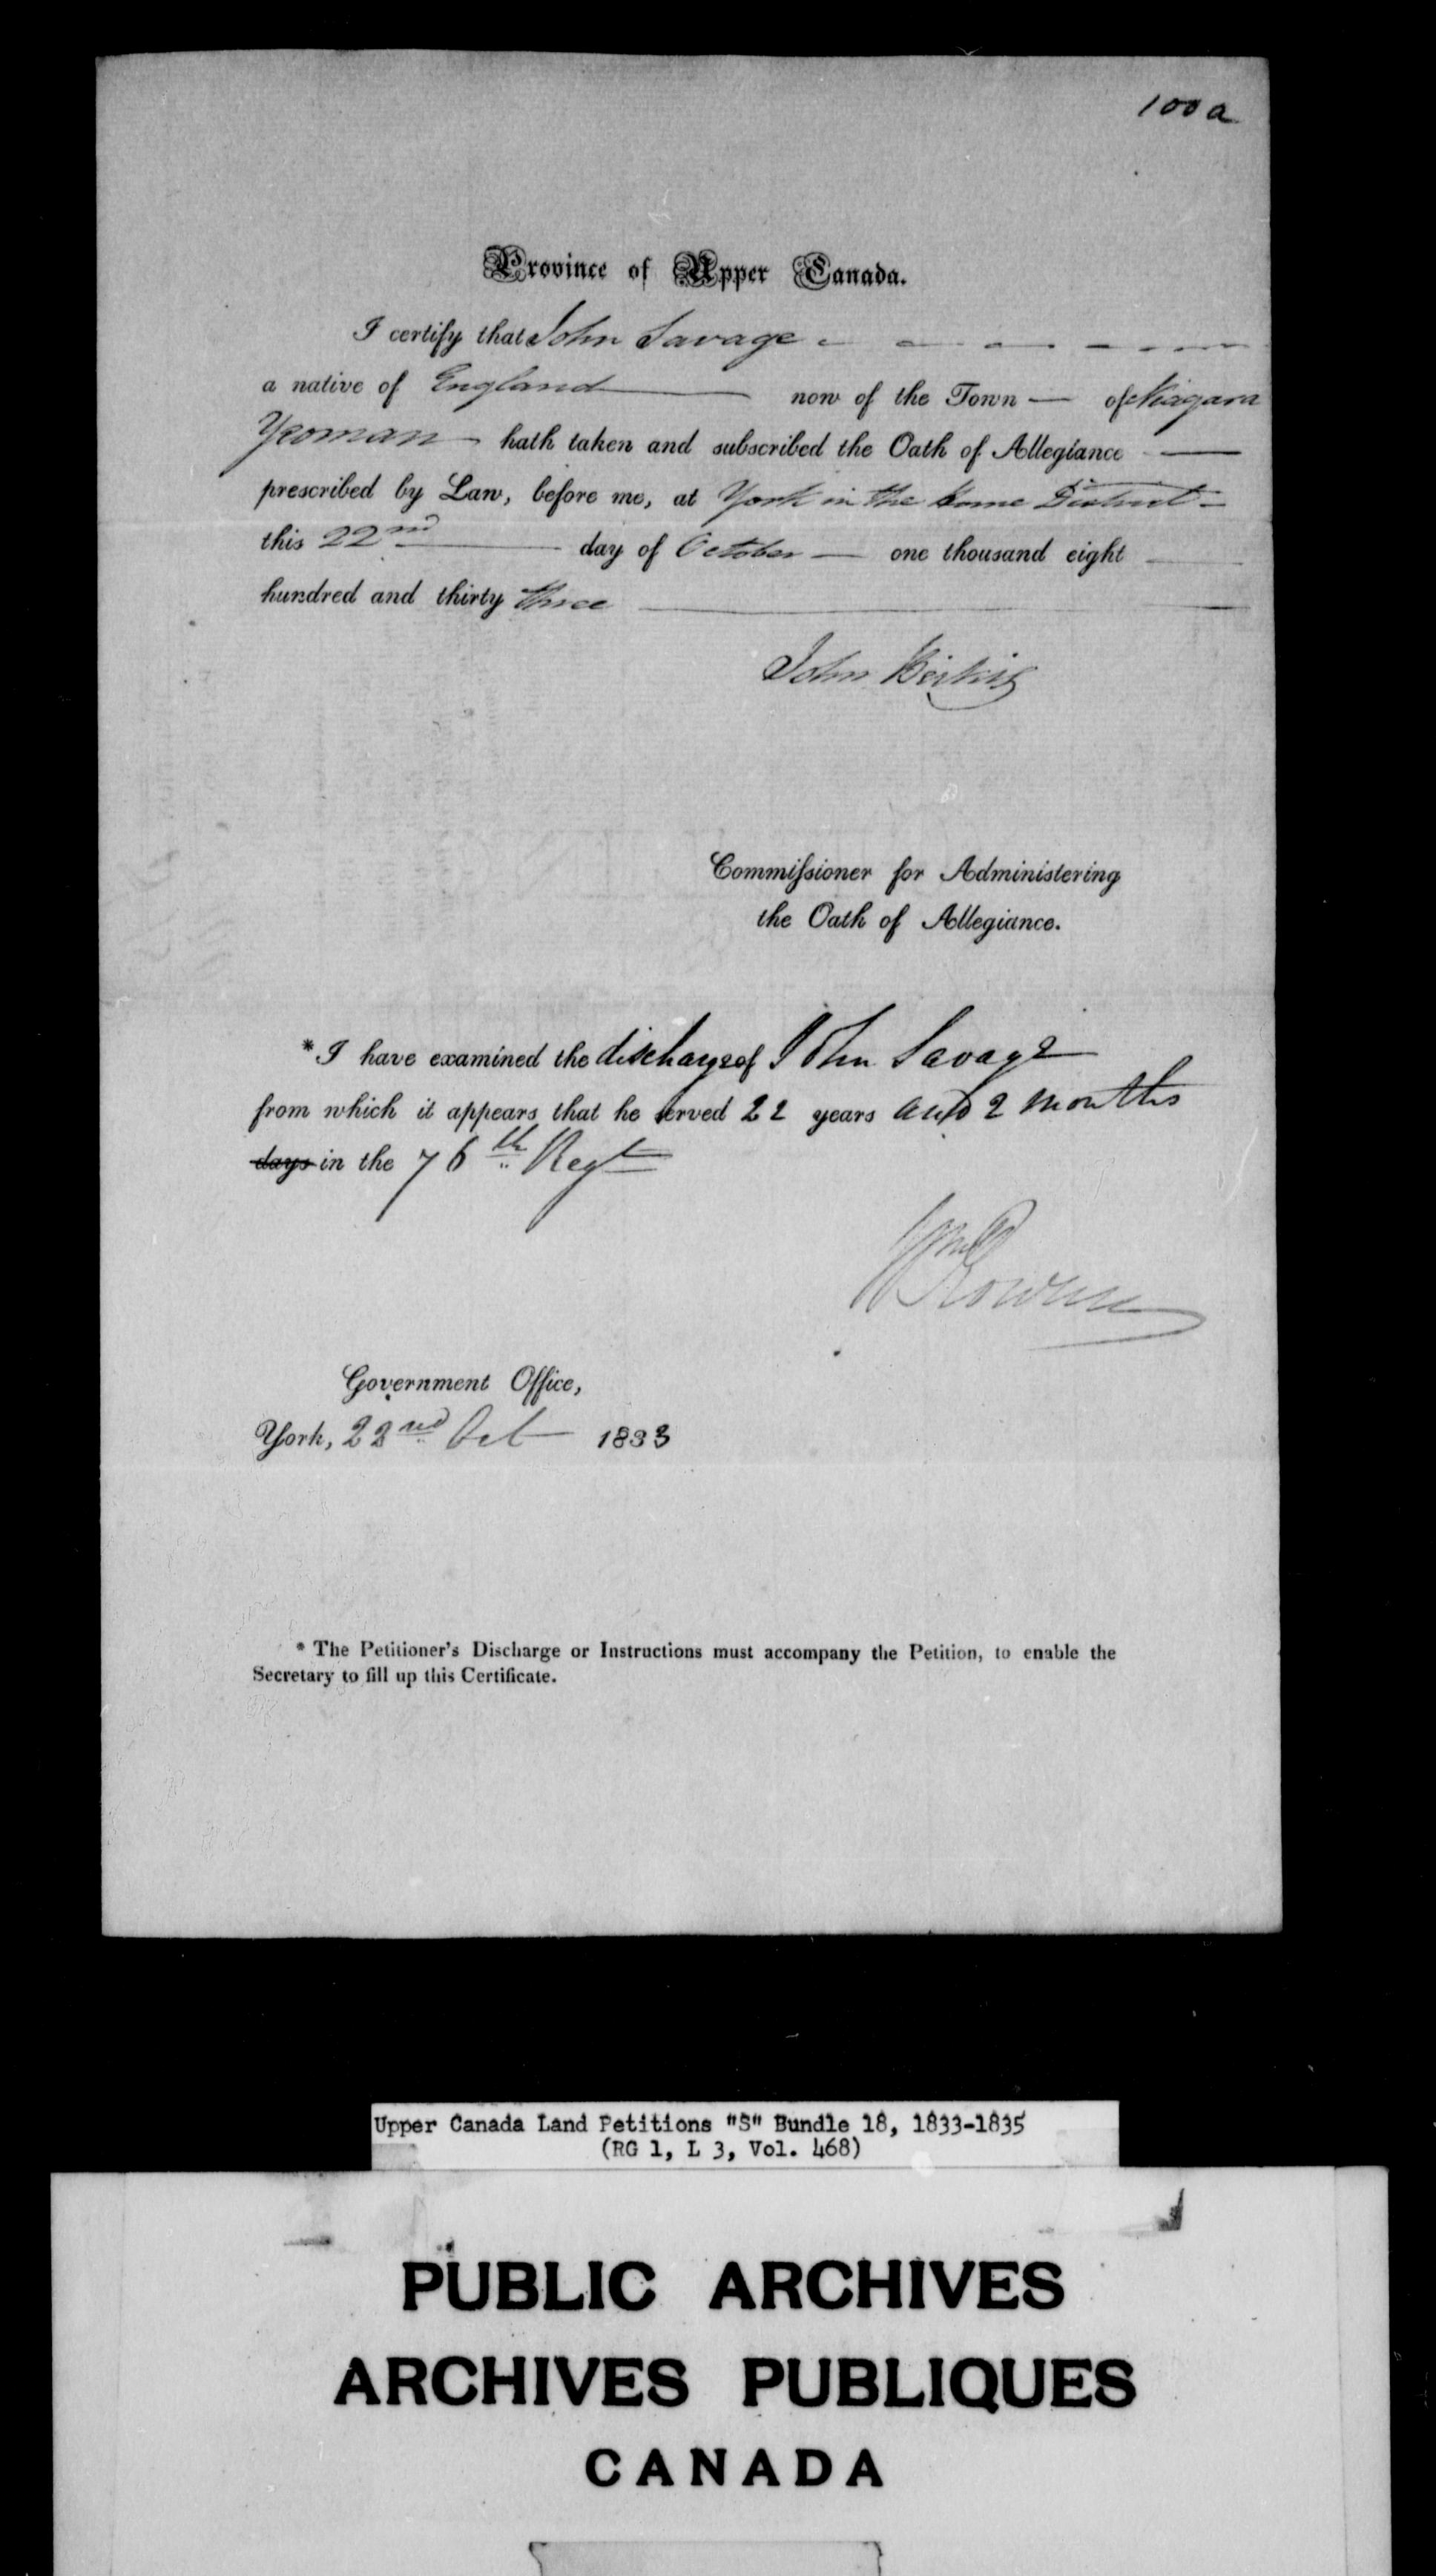 100a
Province of Upper Canada.
I certify that John Savage
a native of England now of the Town of Niagara
Yeoman hath taken and subscribed the Oath of Allegiance
prescribed by Law, before me, at York in the Home District
this 22nd day of October one thousand eight
hundred and thirty three
John
Commissioner for Administering
the Oath of Allegiance.
*I have examined the discharge of John Savage
from which it appears that he served 22 years and 2 months
days in the 76th Regt
Wm Rowan
Government Office,
York, 22nd Oct 1833
* The Petitioner's Discharge or Instructions must accompany the Petition, to enable the
Secretary to fill up this Certificate.
Upper Canada Land Petitions "S" Bundle 18, 1833-1835
(RG 1, L 3, Vol. 468)
PUBLIC ARCHIVES
ARCHIVES PUBLIQUES
CANADA